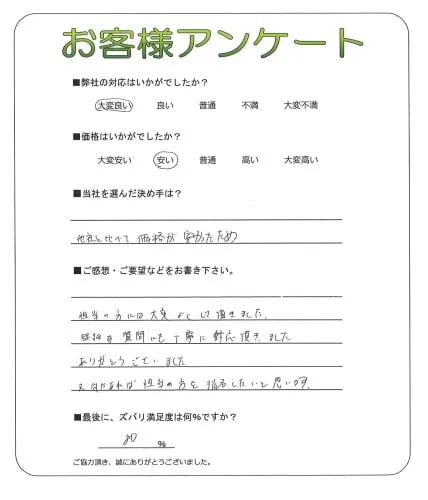 お客様アンケート
■弊社の対応はいかがでしたか？
大変良い 良い 普通 不満 大変不満
■価格はいかがでしたか？
大変安い 安い 普通 高い 大変高い
■当社を選んだ決め手は？
他社と比べて 価格が 安かったため
■ご感想・ご要望などをお書き下さい。
担当の方には大変よくして頂きました。
質問にも丁寧に対応頂きました
ありがとうございました
又何かあれば担当の方を指名したいと思います。
■最後に、ズバリ満足度は何％ですか？
％
ご協力頂き、誠にありがとうございました。